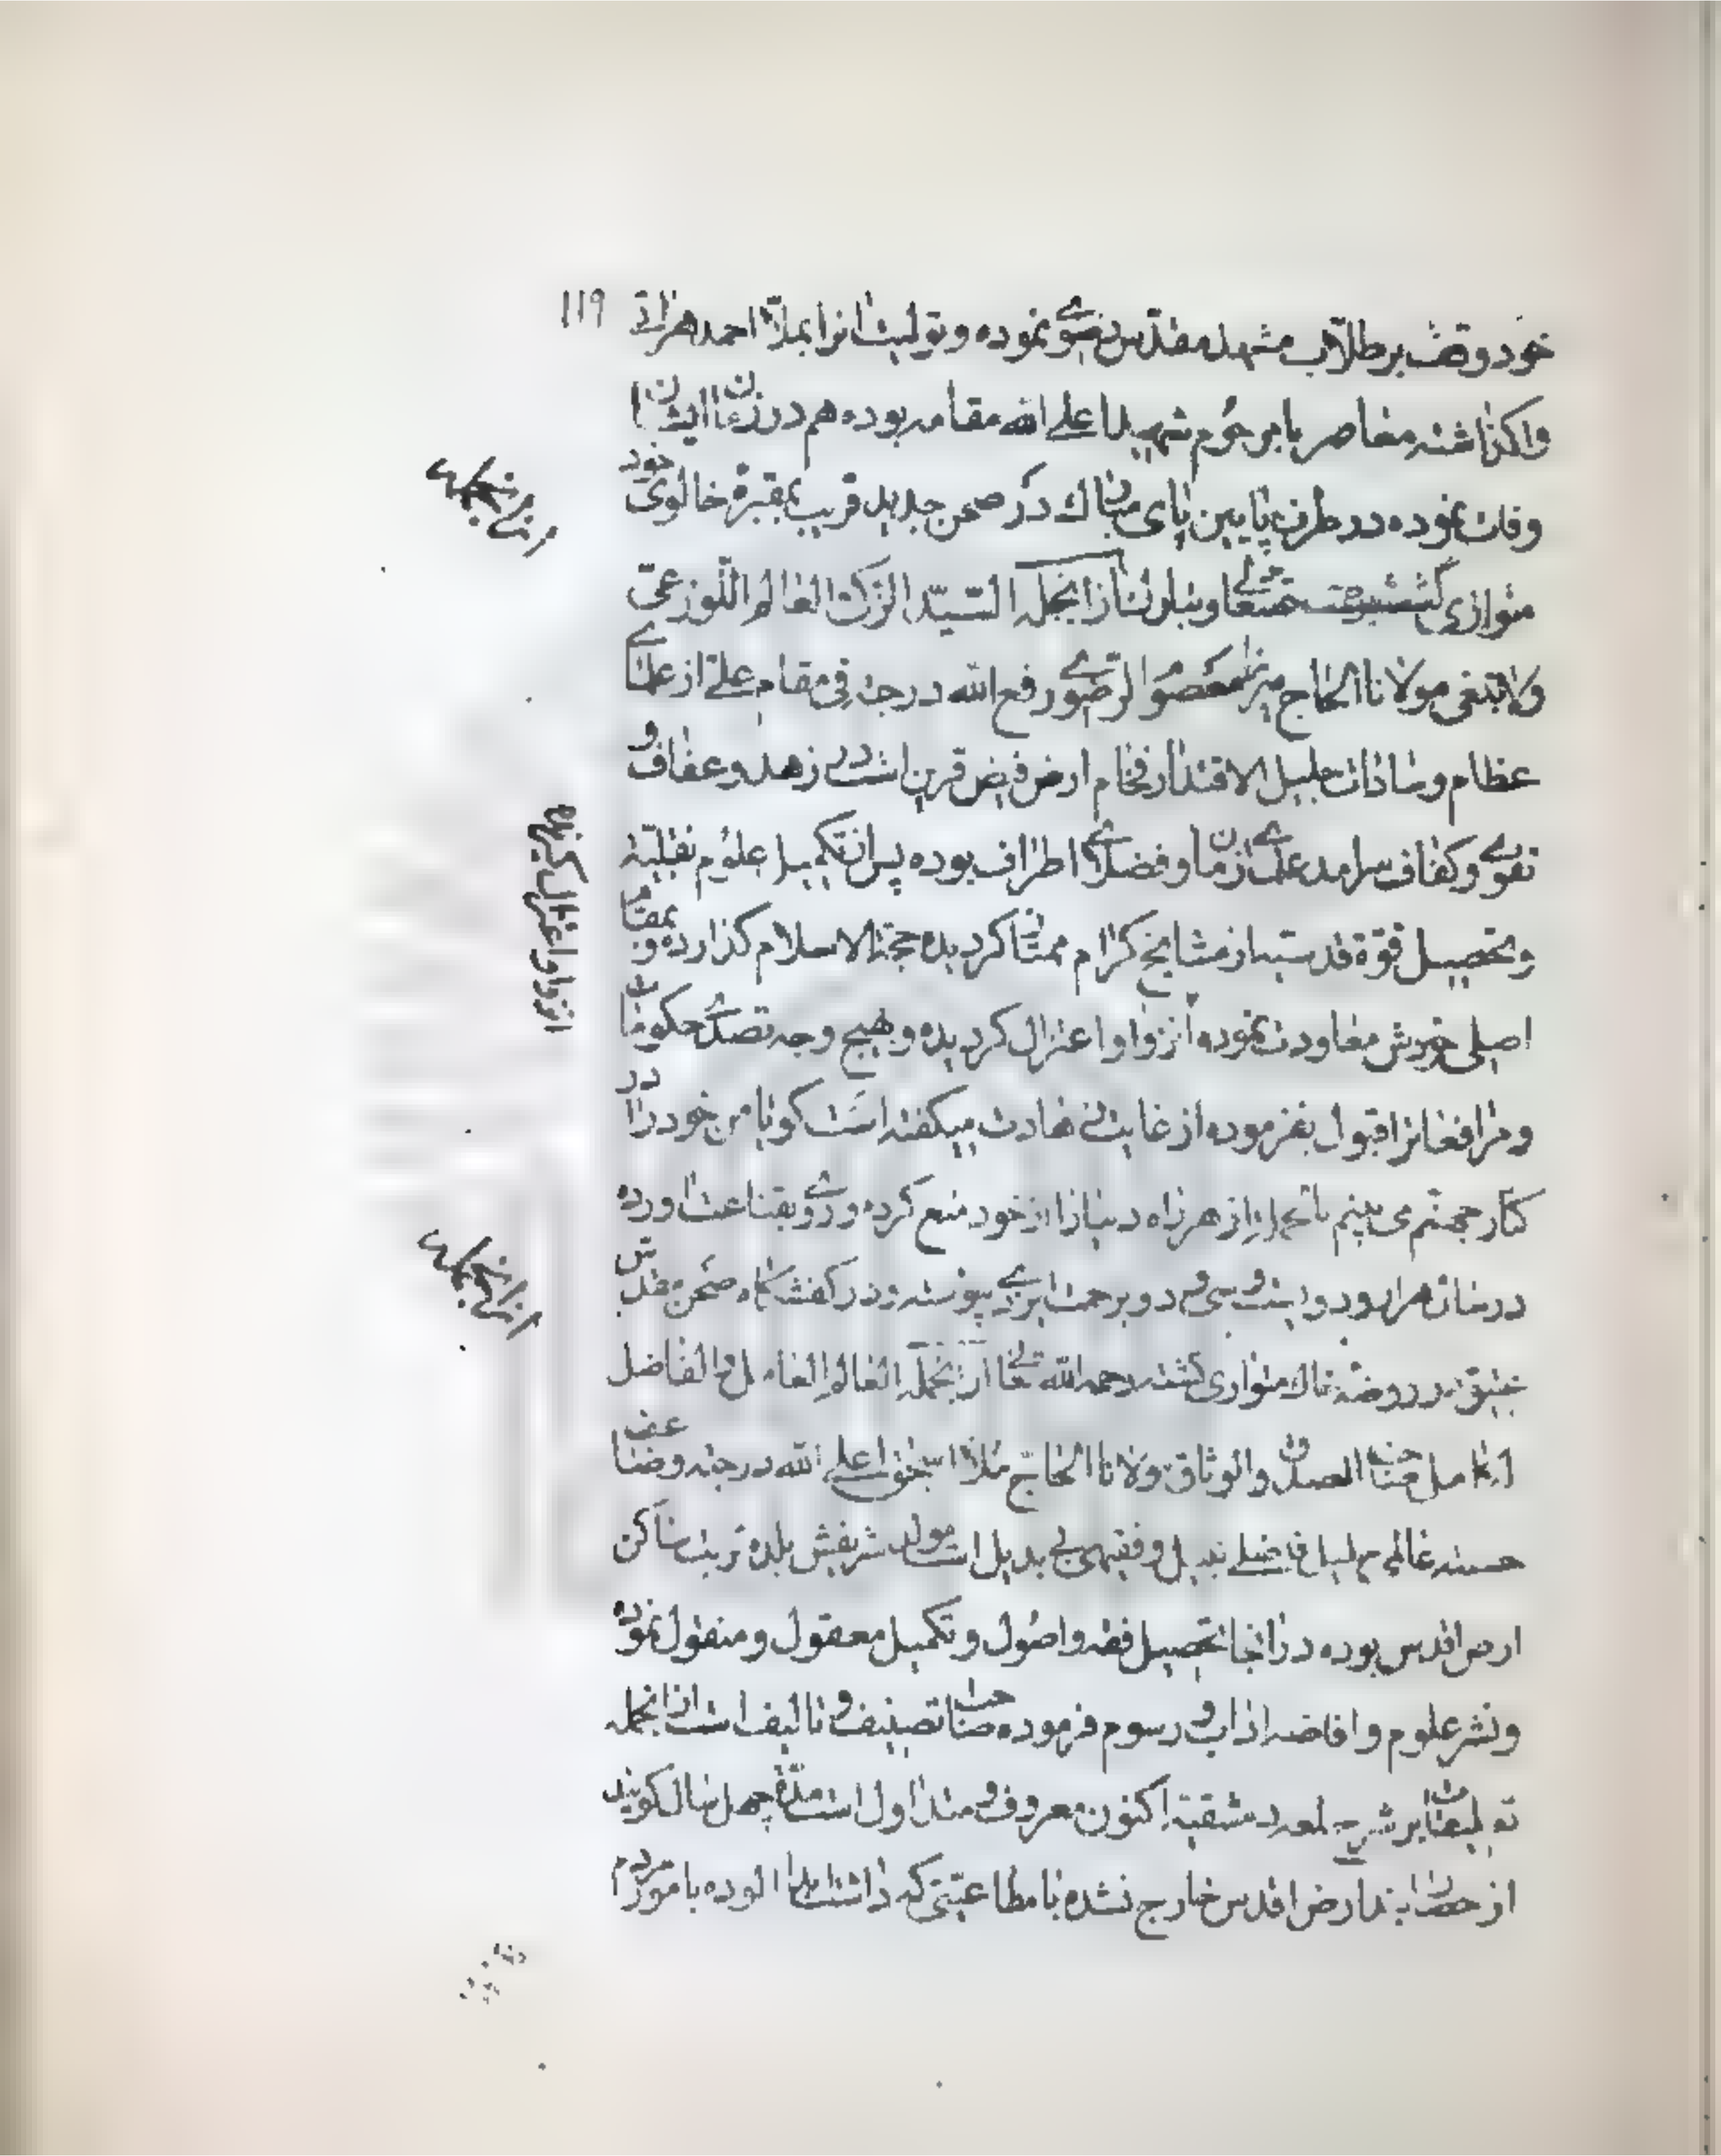 119
خود وقف بر طلاب مشهد مقدس رضوی نموده و تولیت انرا بملا احمد هراتی
واکذاشته معاصر با مرحوم شهید اعلی الله مقامه بوده هم در زمان ایشان
وفات نموده در طرف پایین پای مبارک در صحن جدید قریب بمقبرهٔ خالوی خود
متوازی کشته از انجمله السید الزکی العالم اللوزعی
مولانا الحاج میرزا معصوم الرضوی رفع الله درجته فی مقام علی از علمای
عظام و سادات جلیل الاقتدار فخام ارض فیض قرین است در زهد و عفاف و
تقوی و کفاف سرامد علمای زمان و فضلای اطراف بوده پس از تکمیل علوم نقلیه
و تحصیل قوهٔ قدسیه از مشایخ کرام ممتاز کردیده حجة الاسلام کذارده و بمقام
اصلی خویش معاودت نموده انزوا و اعتزال کردیده و بهیچ وجه تصدی حکومات
و مرافعات را قبول نفرموده از غایت میکفته است کویا من خود را در
کنار جهنم می بینم از هر راه دنیا را از خود منع کرده و روی بقناعت اورده
در سال هزار و دویست و سی و دو برحمت ایزدی پیوسته و در کفشکاه صحن مقدس
عتیق در روضه خاک متواری کشته رحمه الله تعالی از انجمله العالم العامل و الفاضل
الکامل صاحب الصدق و الوثاق مولانا الحاج ملا اسحق اعلی الله درجته وضاعف
حسنته عالمی جلیل فاضلی نبیل و فقیهی بی بدیل است مولد شریفش بلده تربت ساکن
ارض اقدس بوده در انجا تحصیل فقه و اصول و تکمیل معقول و منقول نموده
و نشر علوم و افاضه اداب و رسوم فرموده صاحب تصنیف و تالیف است از انجمله
تعلیقات بر شرح لمعه دمشقیة اکنون معروف و متداول است مدة چهل سال کویند
از ارض اقدس خارج نشده با مطاعیتی که داشت ابدا الوده بامور مردم
از انجمله
انزوا و اعتزال کزیده
از انجمله